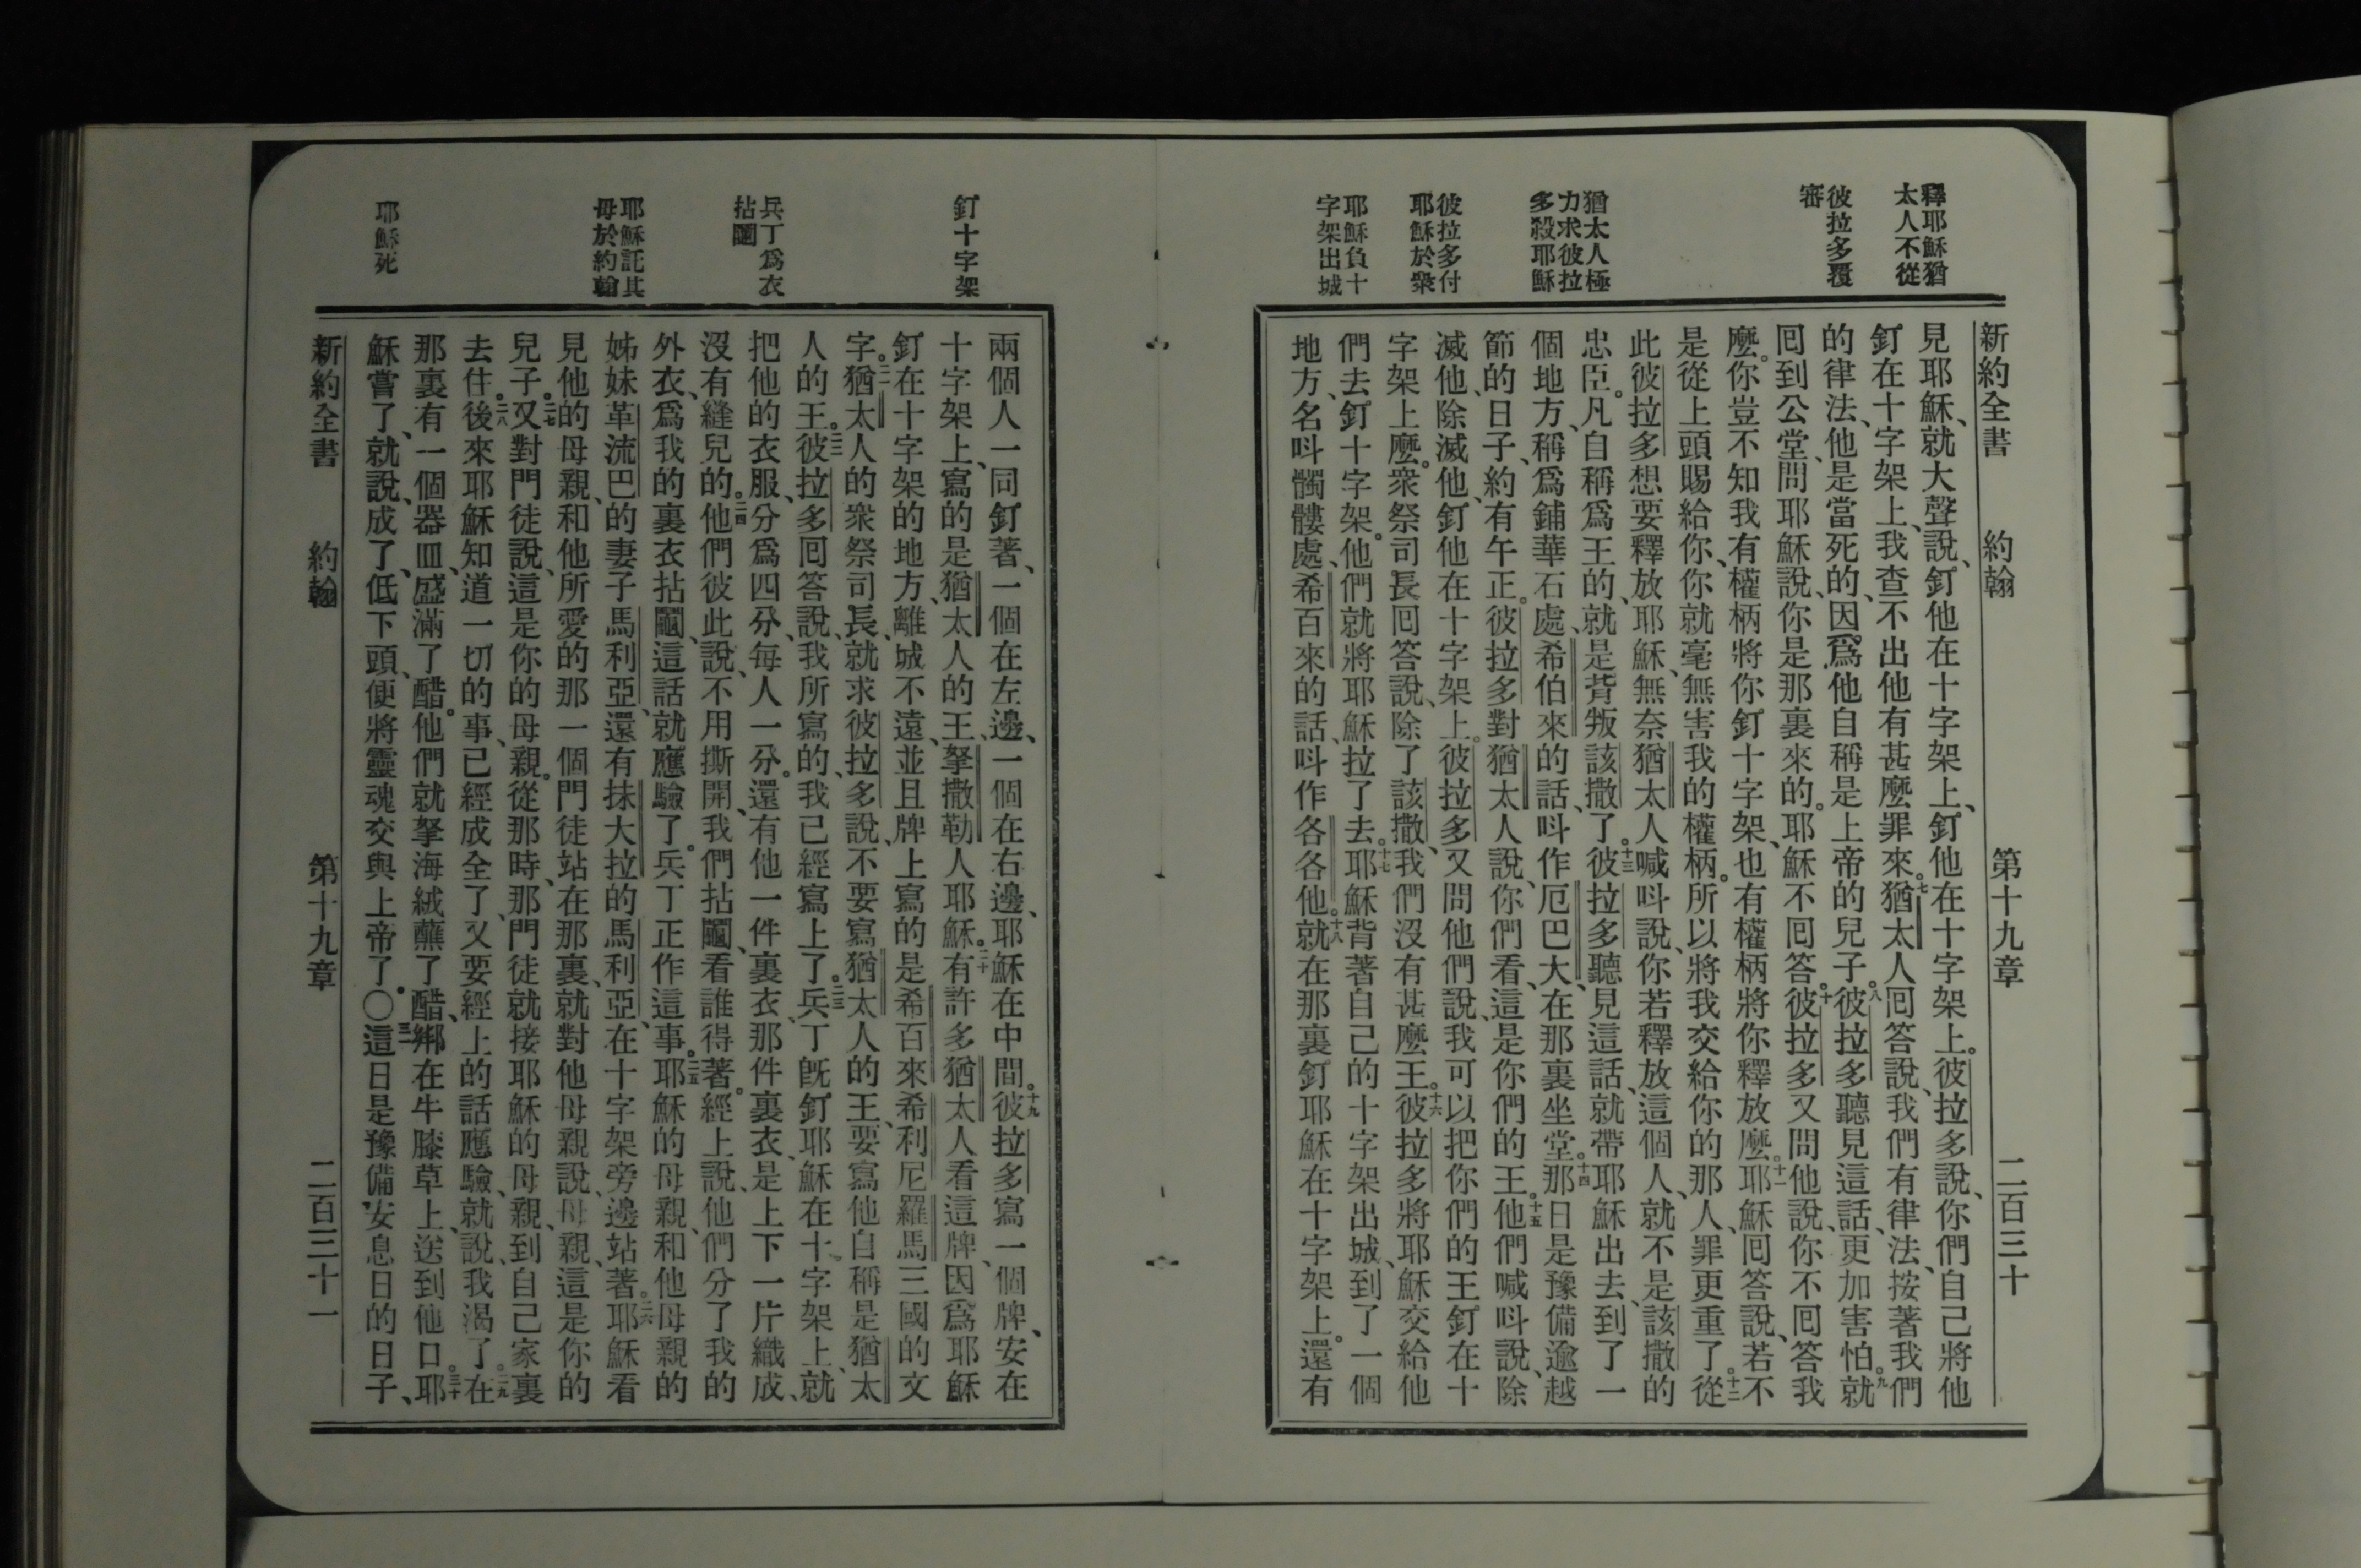 釋耶穌猶
太人不從
彼拉多覆
審
猶太人極
力求彼拉
多殺耶穌
彼拉多付
耶穌於衆
耶穌負十
字架出城
新約全書 約翰 第十九章 二百三十
見耶穌、就大聲說、釘他在十字架上、釘他在十字架上。彼拉多說、你們自己將他
釘在十字架上、我查不出他有甚麼罪來。七猶太人回答說、我們有律法、按著我們
的律法、他是當死的、因爲他自稱是上帝的兒子。八彼拉多聽見這話、更加害怕。九就
回到公堂、問耶穌說、你是那裏來的。耶穌不回答。十彼拉多又問他說、你不回答我
麼。你豈不知我有權柄將你釘十字架、也有權柄將你釋放麼。十一耶穌回答說、若不
是從上頭賜給你、你就毫無害我的權柄。所以將我交給你的那人、罪更重了。十二從
此彼拉多想要釋放耶穌、無奈猶太人喊呌說、你若釋放這個人、就不是該撒的
忠臣。凡自稱爲王的、就是背叛該撒了。十三彼拉多聽見這話、就帶耶穌出去、到了一
個地方、稱爲鋪華石處、希伯來的話、呌作厄巴大、在那裏坐堂。十四那日是豫備逾越
節的日子、約有午正。彼拉多對猶太人說、你們看、這是你們的王。十五他們喊呌說、除
滅他、除滅他、釘他在十字架上。彼拉多又問他們說、我可以把你們的王釘在十
字架上麼。衆祭司長回答說、除了該撒、我們沒有甚麼王。十六彼拉多將耶穌交給他
們去釘十字架。他們就將耶穌拉了去。十七耶穌背著自己的十字架出城、到了一個
地方、名呌髑髏處、希百來的話、呌作各各他。十八就在那裏釘耶穌在十字架上。還有
釘十字架
兵丁爲衣
拈鬮
耶穌託其
母於約翰
耶穌死
兩個人一同釘著、一個在左邊、一個在右邊、耶穌在中間。十九彼拉多寫一個牌、安在
十字架上、寫的是猶太人的王、拏撒勒人耶穌。二十有許多猶太人看這牌、因爲耶穌
釘在十字架的地方、離城不遠、並且牌上寫的是希百來希利尼羅馬三國的文
字。二一猶太人的衆祭司長、就求彼拉多說、不要寫猶太人的王、要寫他自稱是猶太
人的王。二二彼拉多回答說、我所寫的、我已經寫上了。二三兵丁旣釘耶穌在十字架上、就
把他的衣服、分爲四分、每人一分。還有他一件裏衣、那件裏衣、是上下一片織成、
沒有縫兒的。二四他們彼此說、不用撕開、我們拈鬮、看誰得著。經上說、他們分了我的
外衣、爲我的裏衣拈鬮、這話就應驗了。兵丁正作這事。二五耶穌的母親、和他母親的
姊妹革流巴的妻子馬利亞、還有抹大拉的馬利亞、在十字架旁邊站著。二六耶穌看
見他的母親、和他所愛的那一個門徒站在那裏、就對他母親說、母親、這是你的
兒子。二七又對門徒說、這是你的母親。從那時、那門徒就接耶穌的母親、到自己家裏
去住。二八後來耶穌知道一切的事、已經成全了、又要經上的話應驗、就說、我渴了。二九在
那裏有一個器皿、盛滿了醋。他們就拏海絨蘸了醋、綁在牛膝草上、送到他口。三十耶
穌嘗了、就說、成了、低下頭、便將靈魂交與上帝了。〇三一這日是豫備安息日的日子、
新約全書 約翰 第十九章 二百三十一